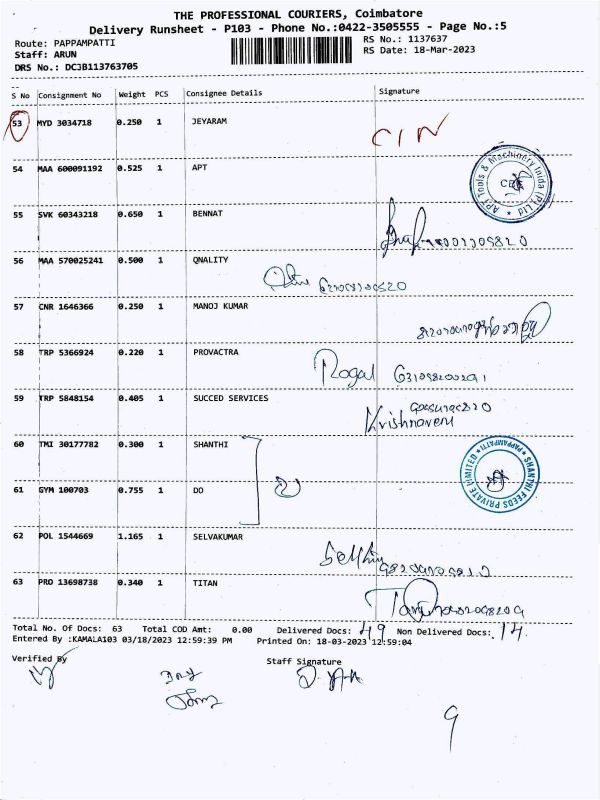 THE PROFESSIONAL COURIERS, Coimbatore
Delivery Runsheet - P103 - Phone No.:0422-3505555 - Page No.:5
Route: PAPPAMPATTI
RS No.: 1137637
Staff: ARUN
RS Date: 18-Mar-2023
DRS No.: DCJB113763705
S No Consignment No Weight PCS Consignee Details Signature
53 MYD 3034718 0.250 1 JEYARAM
CIN
54 MAA 600091192 0.525 1 APT
APT Tools & Machinery Inida (P) Ltd
55 SVK 60343218 0.650 1 BENNAT
56 MAA 570025241 0.500 1 QNALITY
57 CNR 1646366 0.250 1 MANOJ KUMAR
58 TRP 5366924 0.220 1 PROVACTRA
Rogal
59 TRP 5848154 0.405 1 SUCCED SERVICES
Krishnaveni
60 TMI 30177782 0.300 1 SHANTHI
SHANTHI FEEDS PRIVATE LIMITED * PAPPAMPATTI *
61 GYM 100703 0.755 1 DO
62 POL 1544669 1.165 1 SELVAKUMAR
63 PRD 13698738 0.340 1 TITAN
Total No. Of Docs: 63 Total COD Amt: 0.00 Delivered Docs: 49 Non Delivered Docs: 14
Entered By :KAMALA103 03/18/2023 12:59:39 PM Printed On: 18-03-2023 12:59:04
Verified By Staff Signature
9